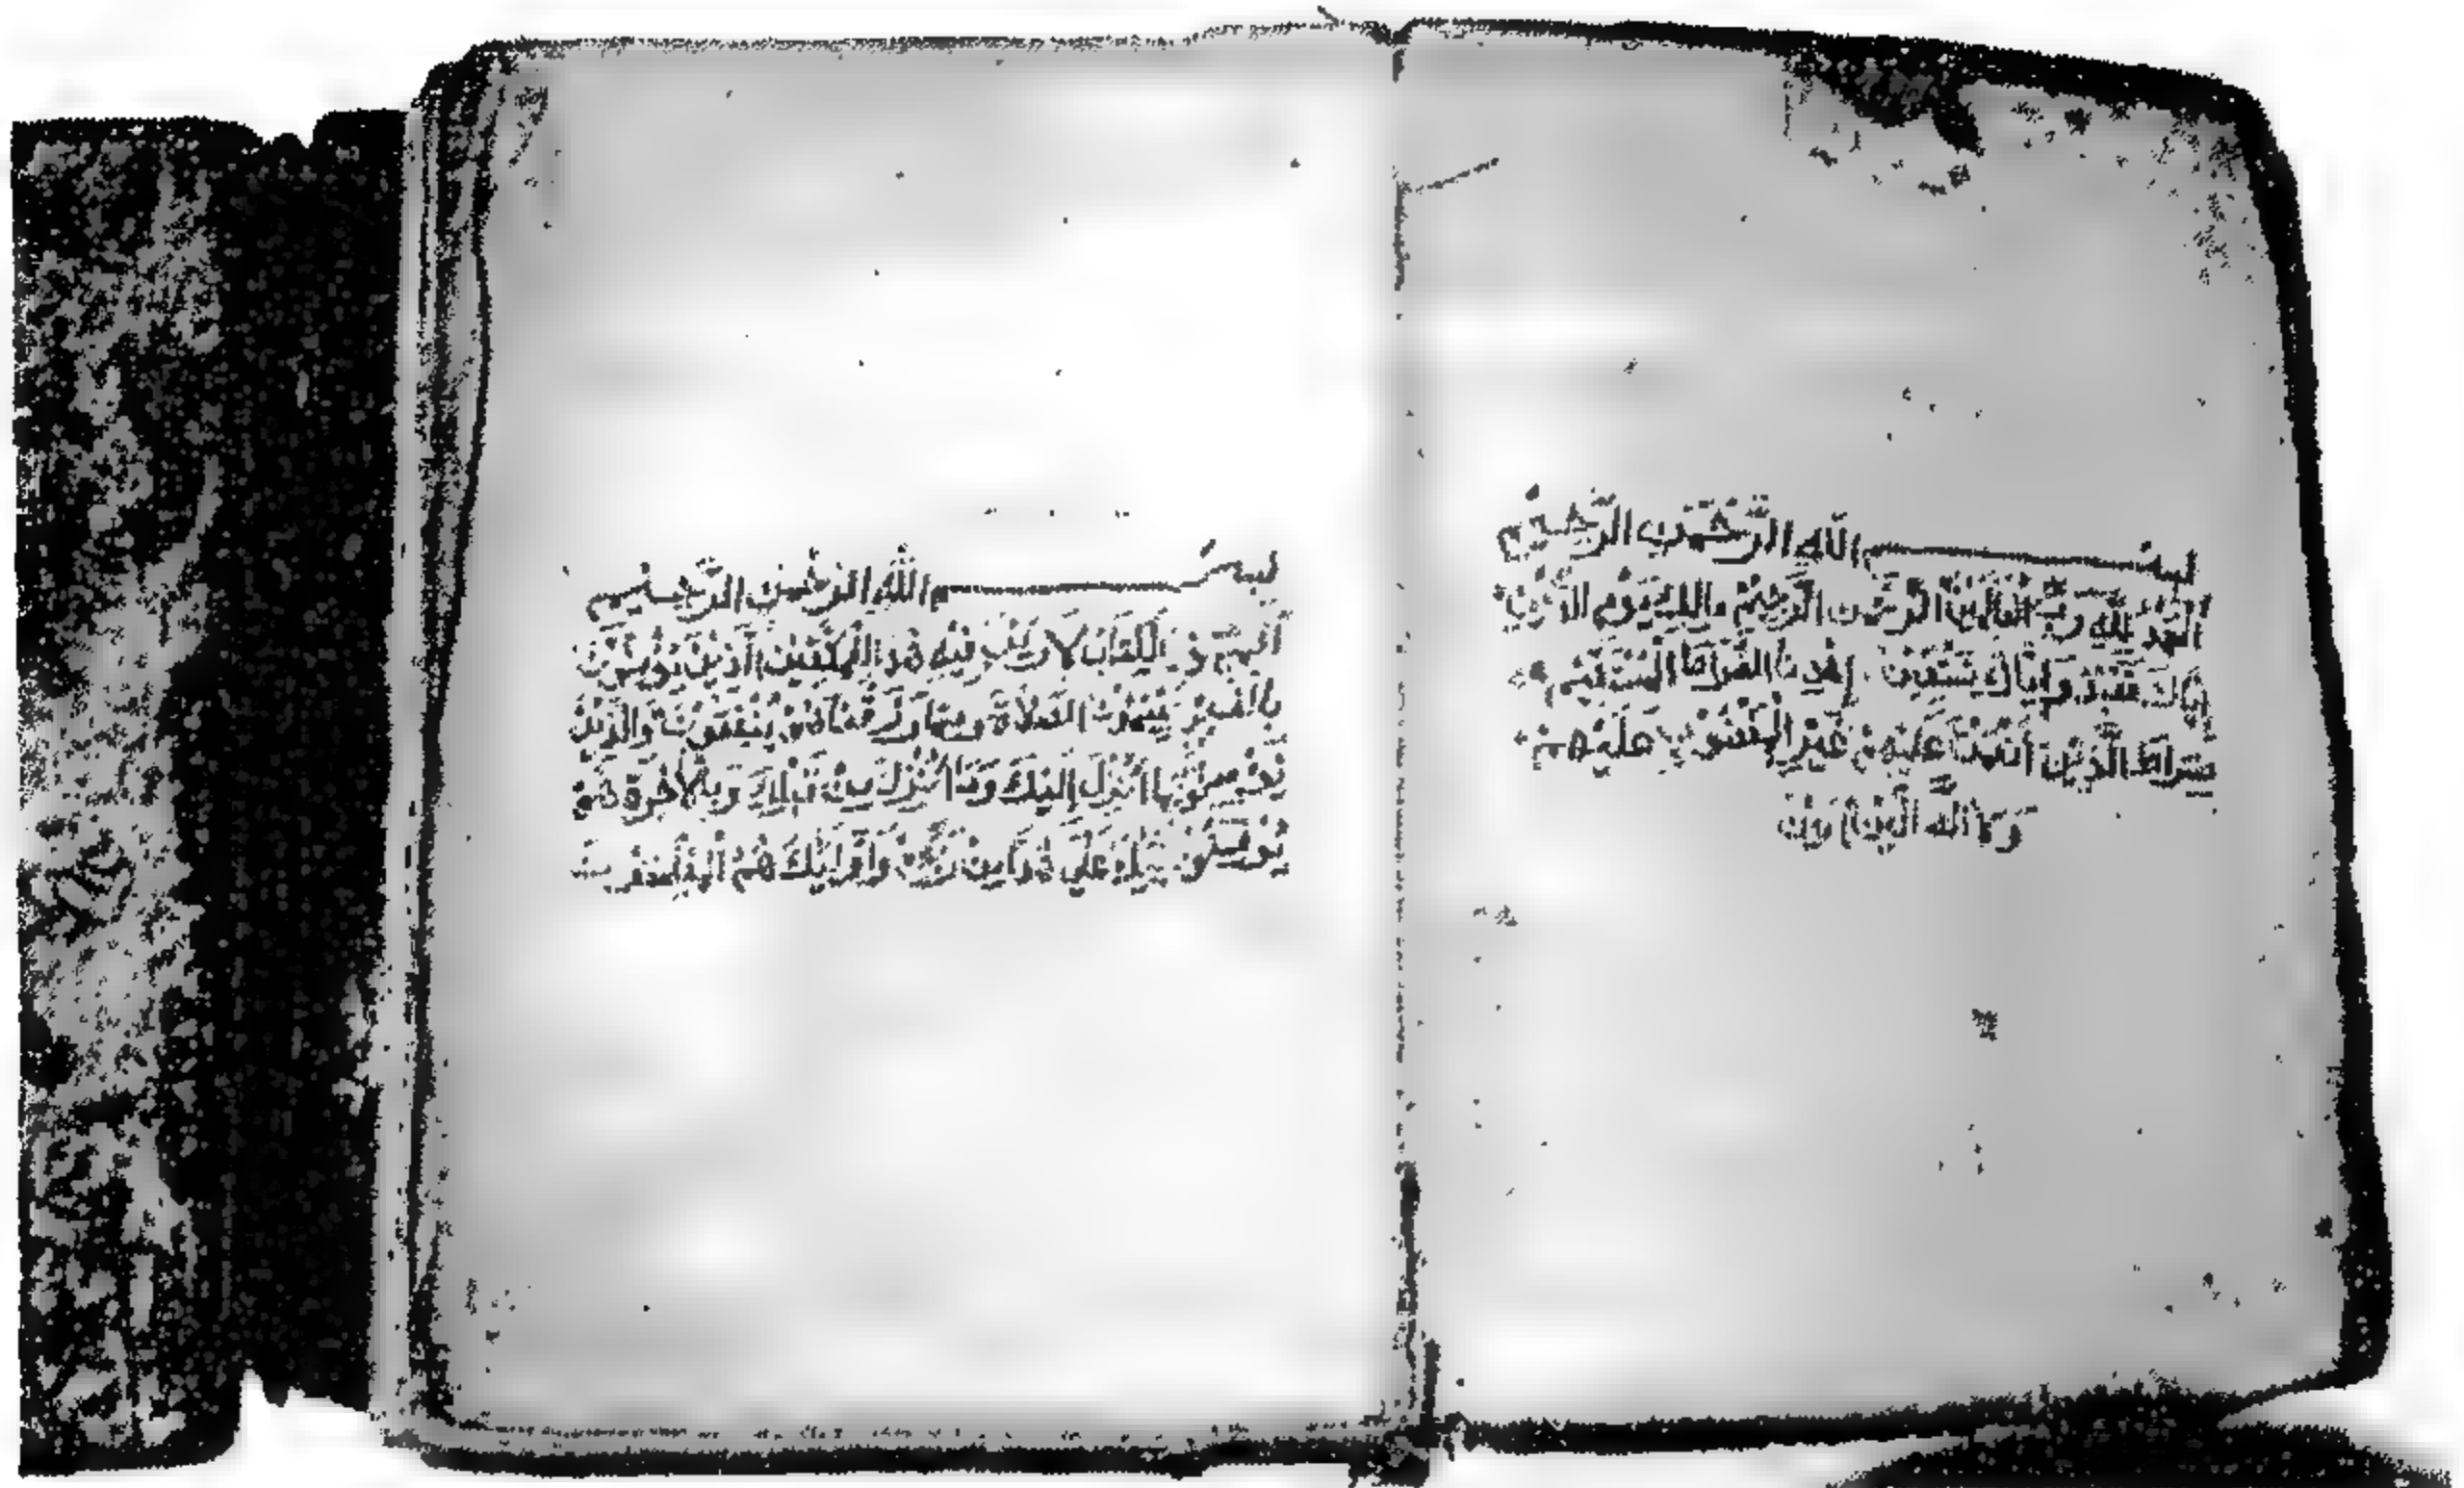 بسم الله الرحمن الرحيم
الحمد لله رب العالمين الرحمن الرحيم مالك يوم الدين
اياك نعبد واياك نستعين اهدنا الصراط المستقيم
صراط الذين أنعمت عليهم غير المغضوب عليهم
ولا الضالين
بسم الله الرحمن الرحيم
الم ذلك الكتاب لا ريب فيه هدى للمتقين الذين يؤمنون
بالغيب ويقيمون الصلاة ومما رزقناهم ينفقون والذين
يؤمنون بما انزل اليك وما انزل من قبلك وبالآخرة هم
يوقنون اولئك على هدى من ربهم واولئك هم المفلحون